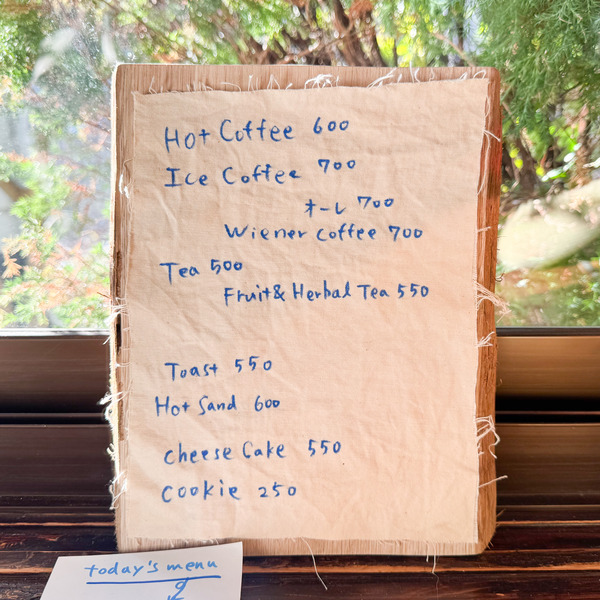 Hot Coffee 600
Ice Coffee 700
オーレ 700
Wiener Coffee 700
Tea 500
Fruit & Herbal Tea 550
Toast 550
Hot Sand 600
Cheese Cake 550
Cookie 250
today's menu